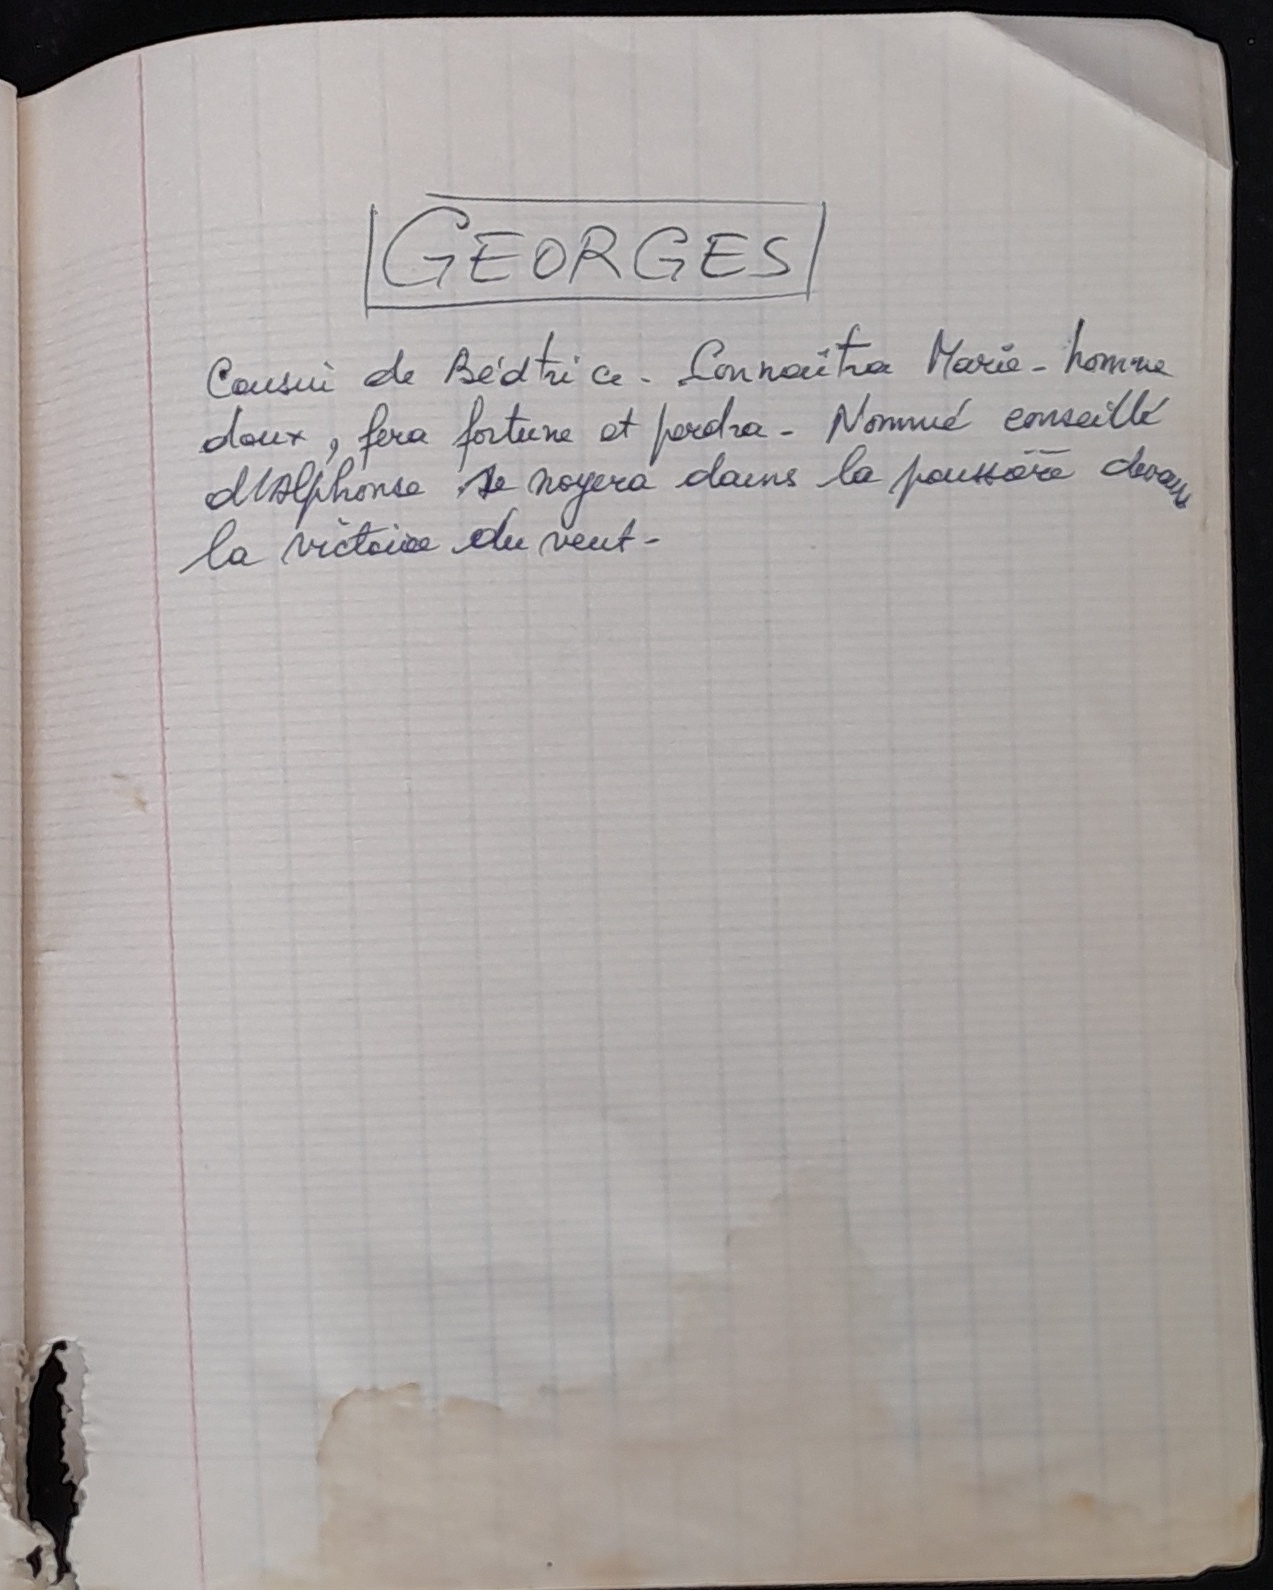 GEORGES
Cousin de Béatrice. Connaîtra Marie - homme
doux, fera fortune et perdra - Nommé conseillé
d'Alphonse se noyera dans la poussière devant
la victoire du vent -